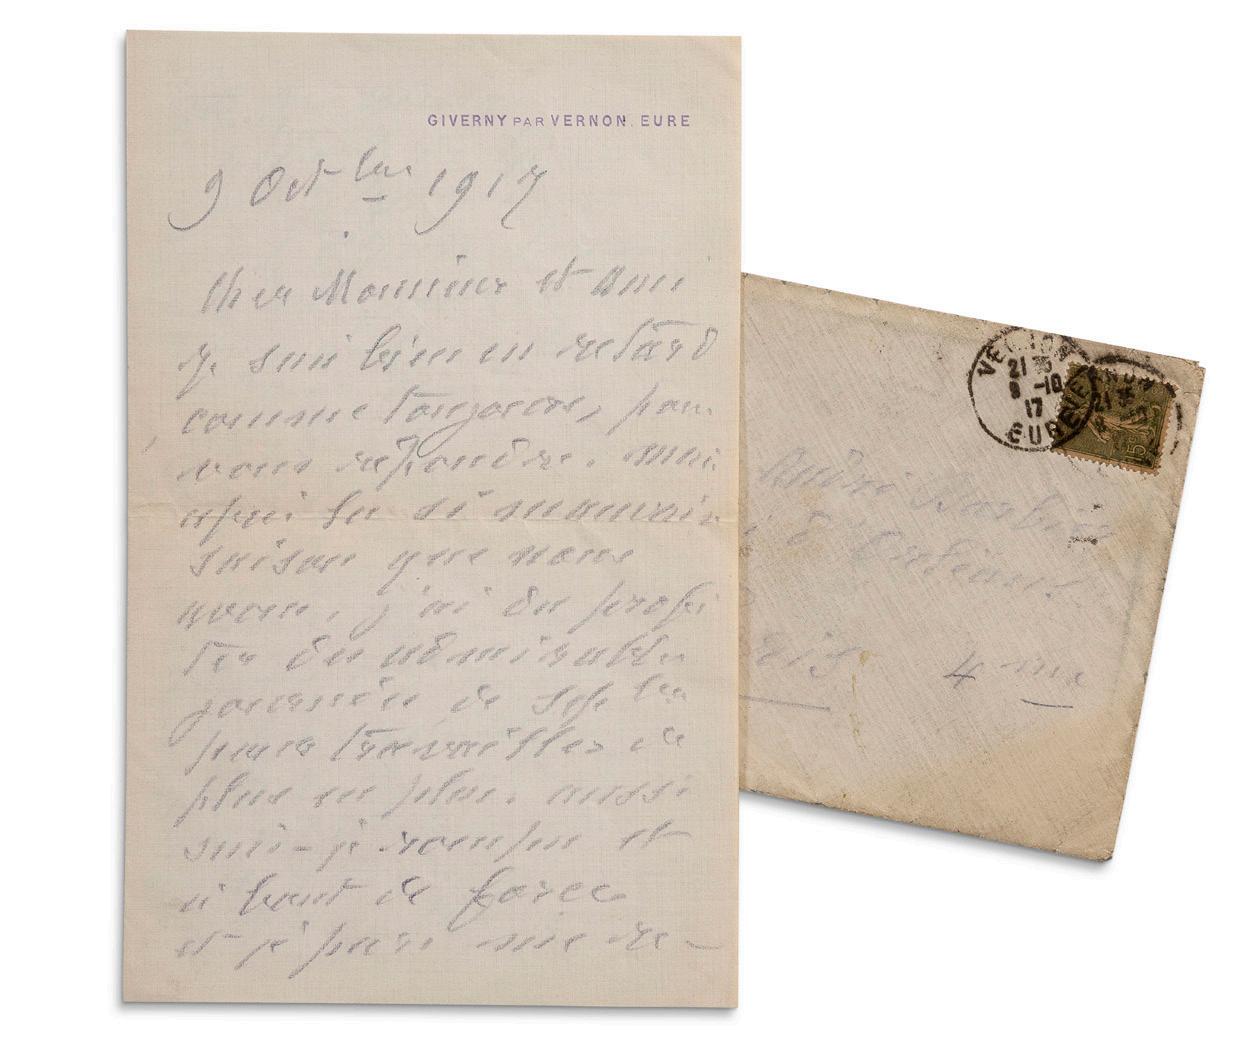 GIVERNY PAR VERNON. EURE
9 Octbre 1917
Cher Monsieur et ami
je suis bien en retard
comme toujours, pour
vous répondre. mais
après la si mauvaise
saison que nous
avons, j'ai du profi
ter des admirables
journées de Sepbre
pour travailler de
plus en plus. aussi
suis-je rompu et
à bout de force
et je pars me re-
VERNON
21 35
9 -10
17
EURE
15
André Barbier
d'Orléans.
Paris 4ème